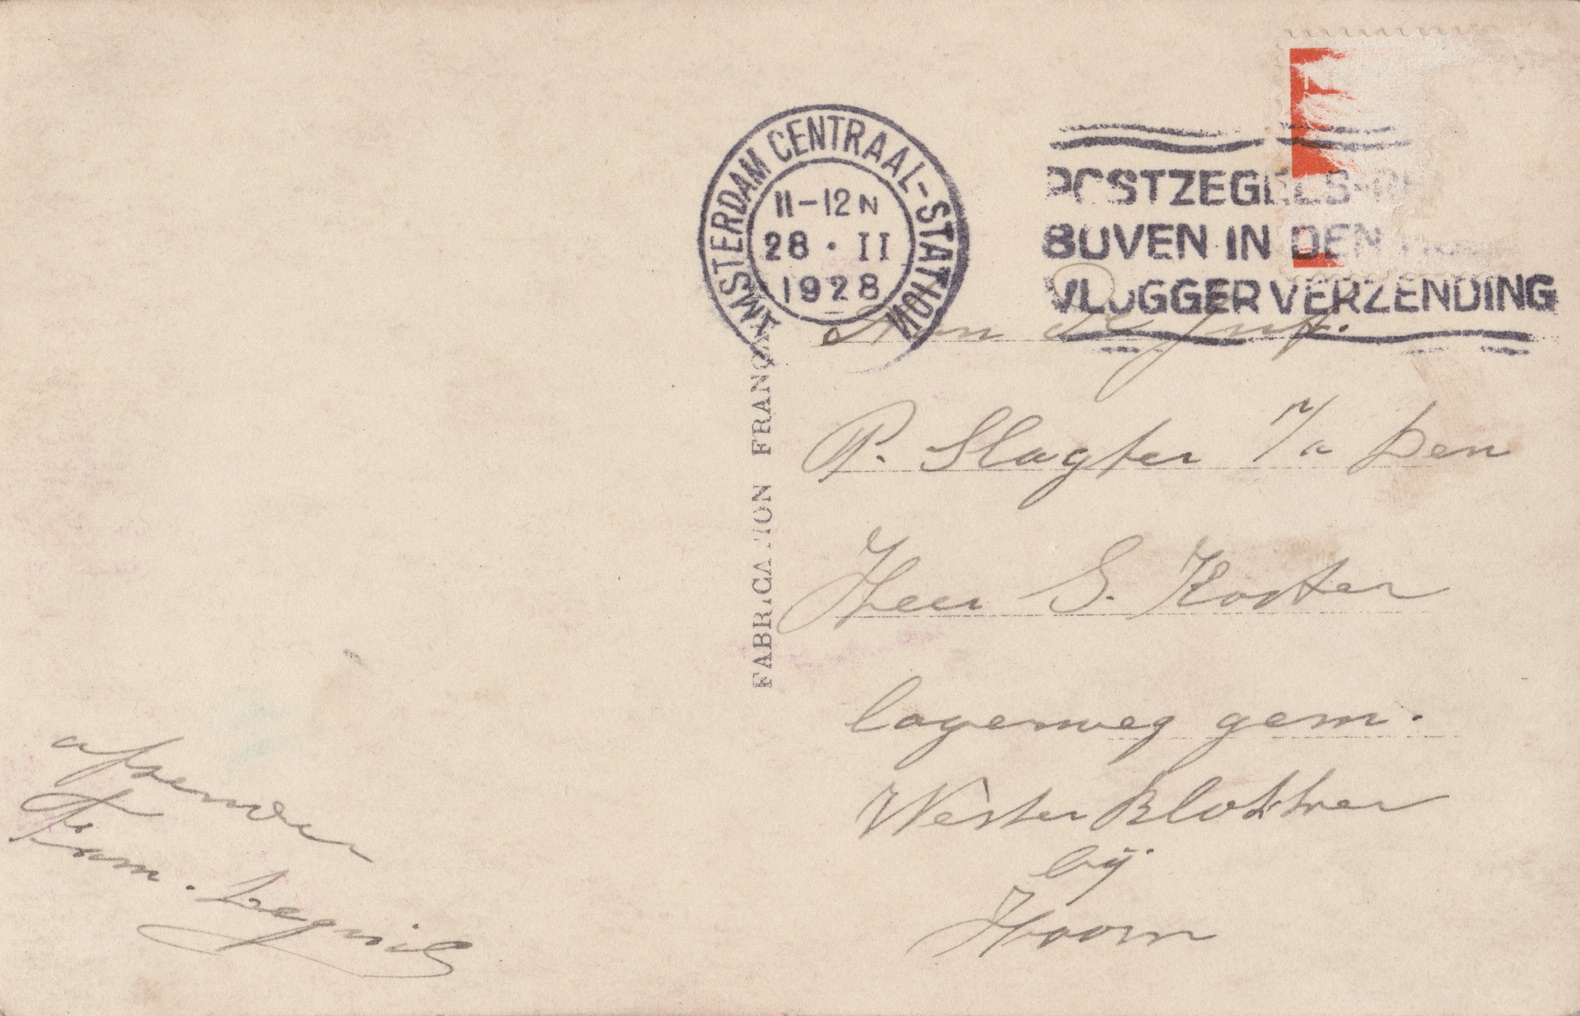 AMSTERDAM CENTRAAL-STATION
11-12N
28 · II
1928
POSTZEGELS-RE
BOVEN IN DEN
VLUGGER VERZENDING
FABRICATION FRANÇAISE
Aan de Juf.
P. Slagter p/a Den
Heer S. Koster
lagenweg gem.
Wester Blokker
bij
Hoorn
afzender
Fam.